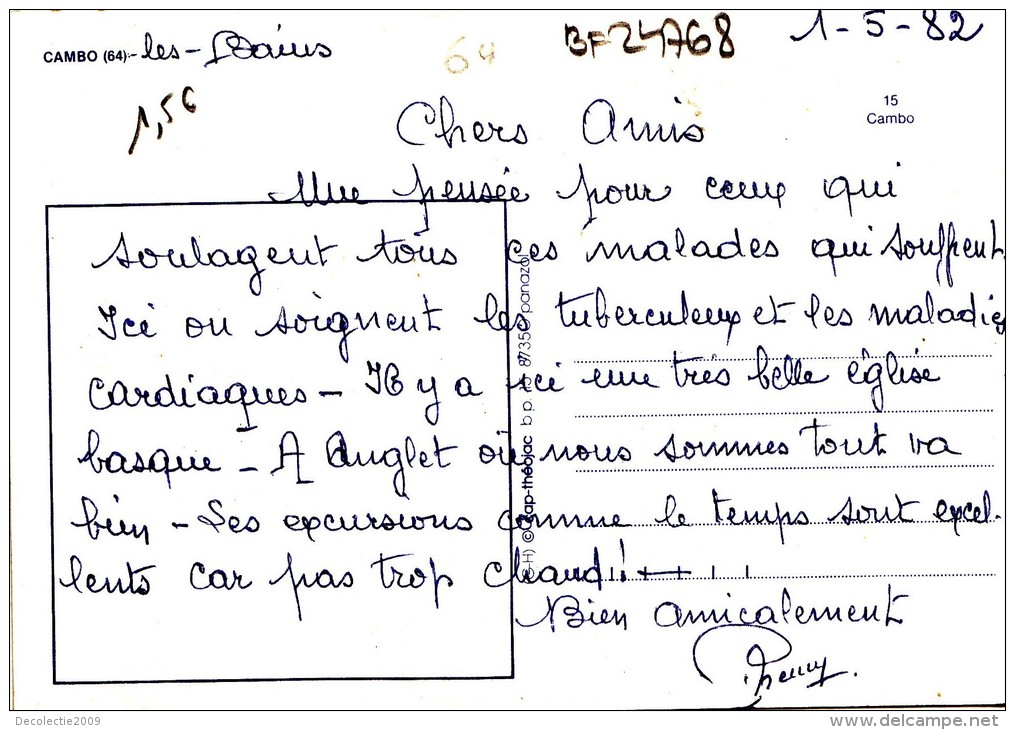 CAMBO (64):-les-Bains
64
BF24768
1-5-82
1,5€
15
Cambo
Chers Amis
Une pensée pour ceux qui
soulagent tous ces malades qui souffrent.
Ici on soignent les tuberculeux et les maladies
cardiaques - Il y a ici une très belle église
basque - A Anglet où nous sommes tout va
bien - Les excursions comme le temps sont excel-
lents car pas trop chaud!
Bien amicalement
bp. 15 87350 panazol
théojac
Decolectie2009
www.delcampe.net